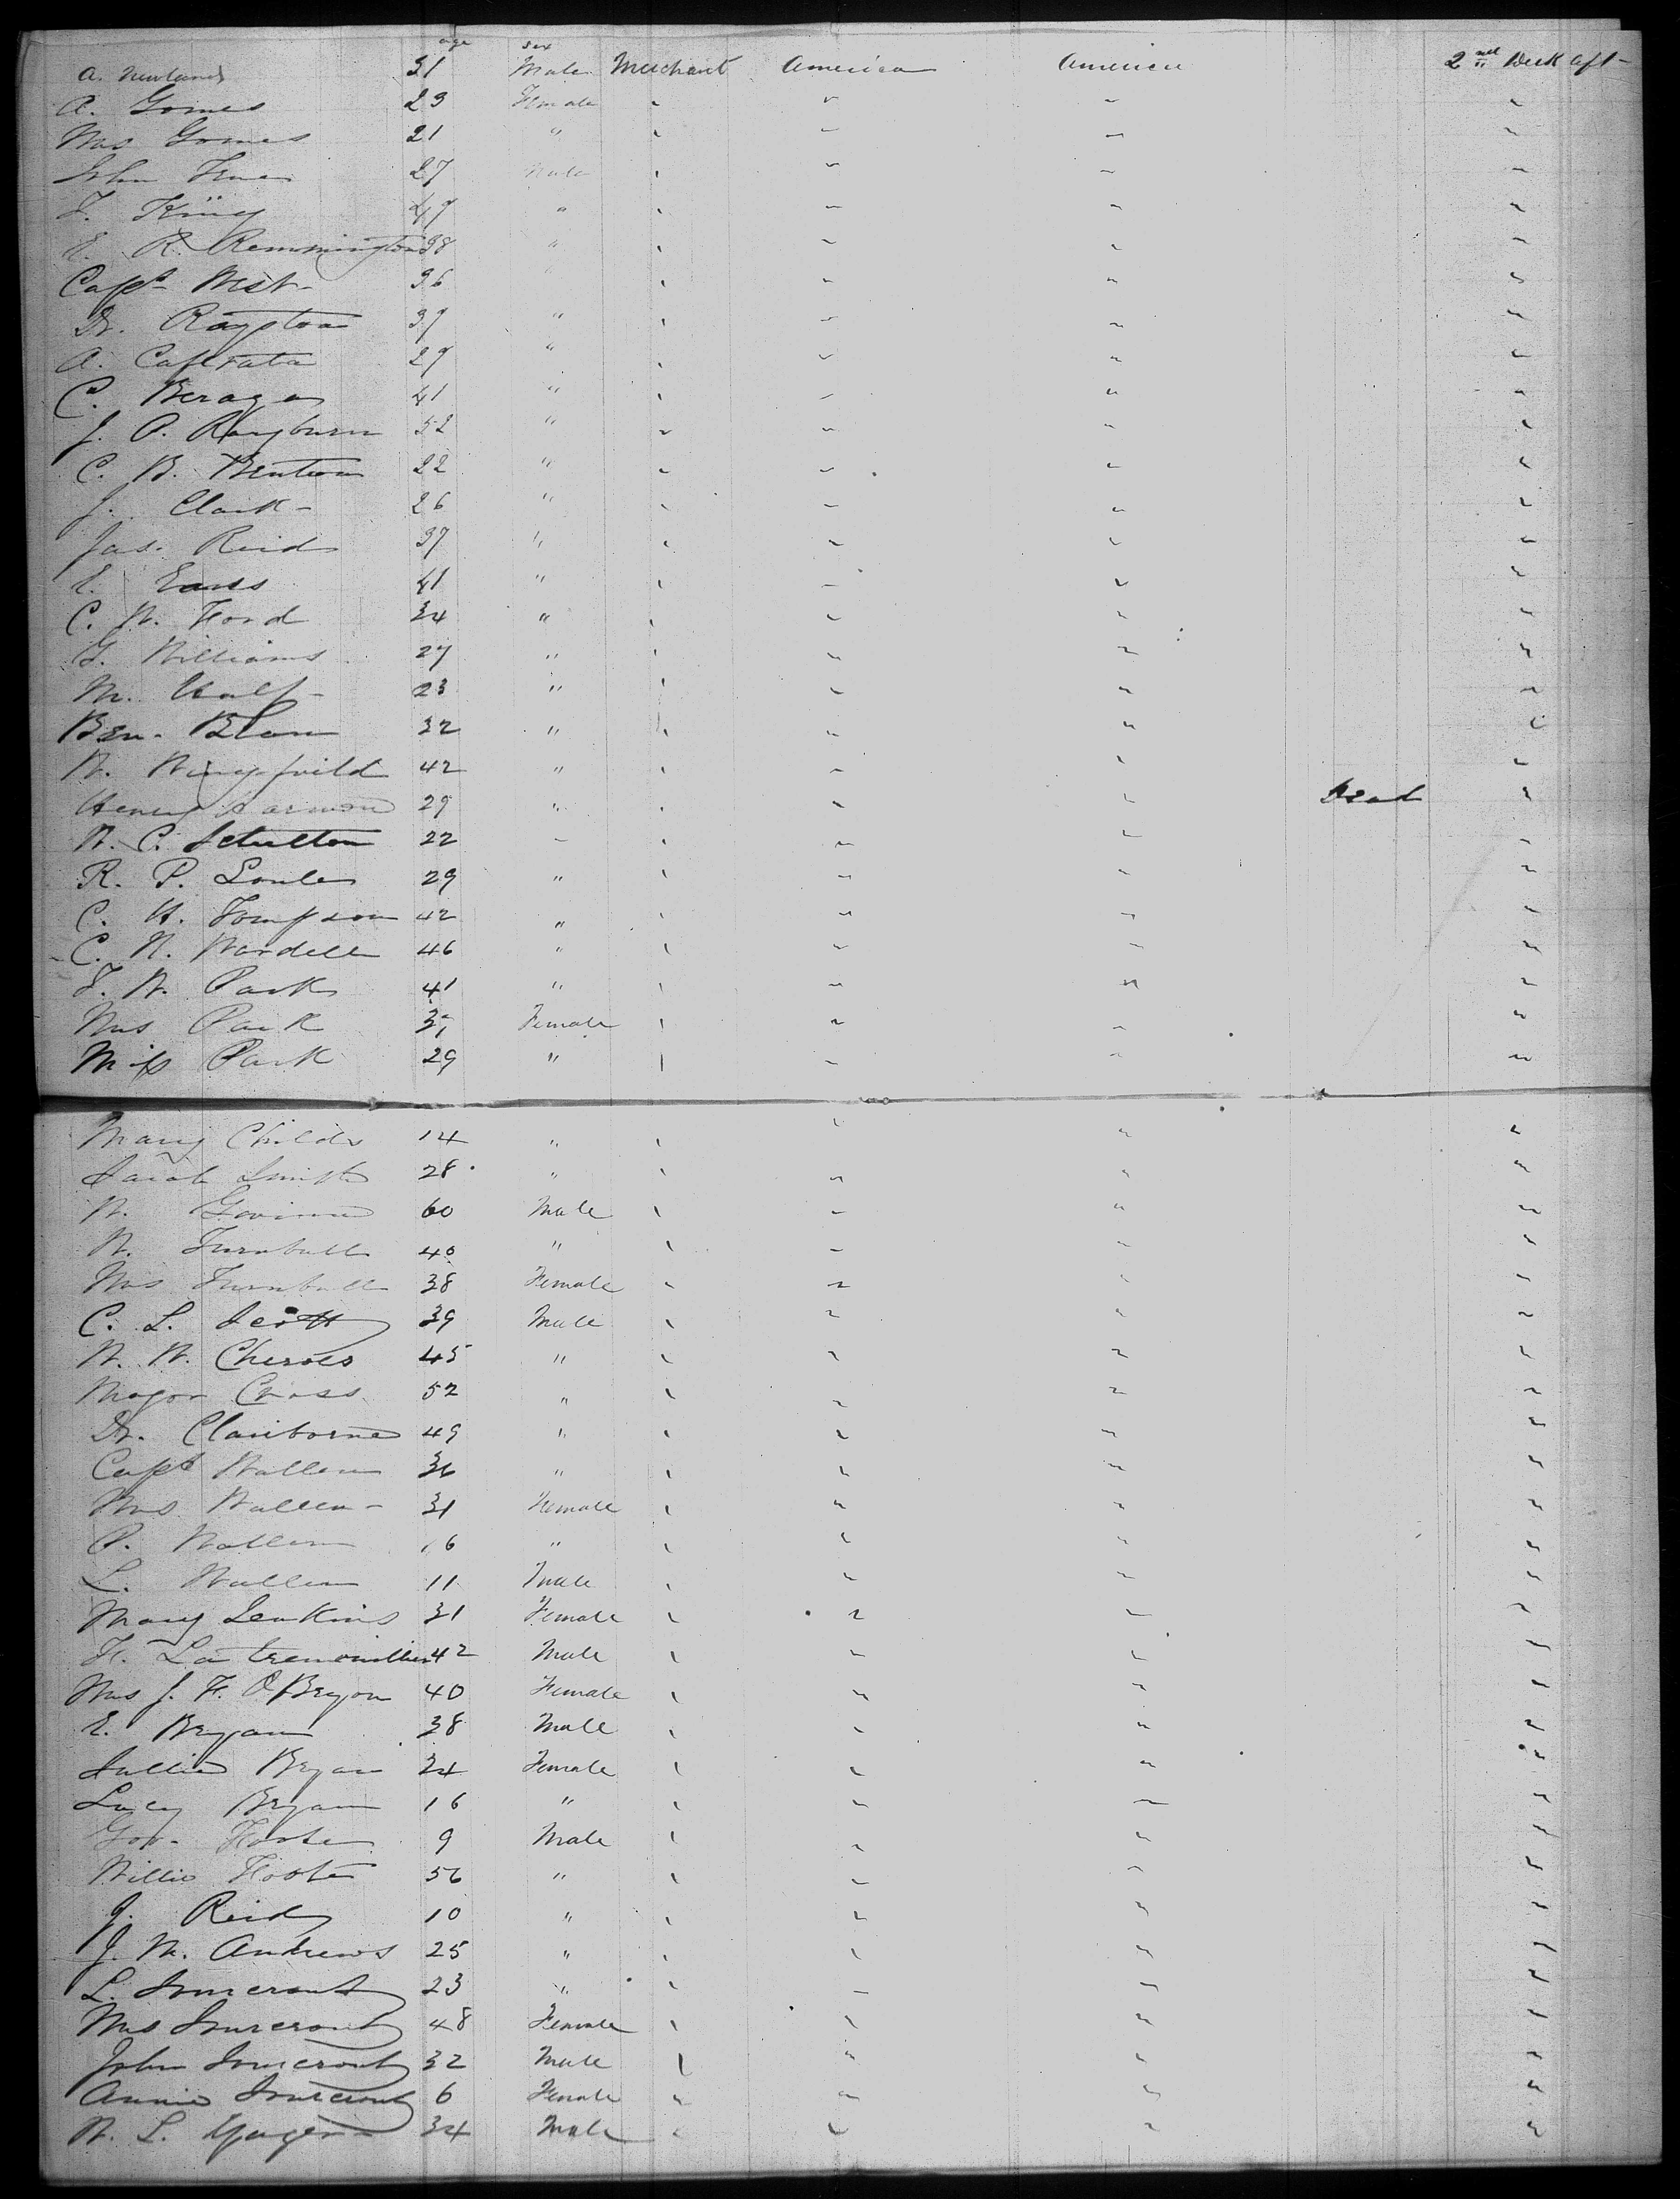 age sex
A. Newlands 31 Male Merchant America America 2nd Deck aft -
A. Gomes 23 Female " " " "
Mrs Gomes 21 " " " " "
John 27 Male " " " "
J. King 49 " " " " "
E. R. Remmington 38 " " " " "
Capt West 36 " " " " "
Dr. Rayston 37 " " " " "
A. Cafferata 29 " " " " "
C. 41 " " " " "
J. P. Rayburn 52 " " " " "
C. B. Benton 22 " " " " "
J. Clark - 26 " " " " "
Jas. Reid 37 " " " " "
E. 41 " " " " "
C. W. Ford 34 " " " " "
G. Williams 27 " " " " "
M. 23 " " " " "
Ben. 32 " " " " "
W. Wingfield 42 " " " " "
Henry Harmon 29 " " " " Dead "
W. C. 22 " " " " "
R. P. 29 " " " " "
C. H. Tompson 42 " " " " "
C. N. Wardell 46 " " " " "
T. W. Park 41 " " " " "
Mrs Park 37 Female " " " "
Miss Park 29 " " " " "
Mary Childs 14 " " " " "
Sarah Smith 28 " " " " "
W. 60 Male " " " "
W. Turnbull 40 " " " " "
Mrs Turnbull 38 Female " " " "
C. L. Scott 39 Male " " " "
W. W. 45 " " " " "
Major Cross 52 " " " " "
Dr. Claiborne 49 " " " " "
Capt Wallen 36 " " " " "
Mrs Wallen - 31 Female " " " "
P. Wallen 16 " " " " "
L. Wallen 11 Male " " " "
Mary Jenkins 31 Female " " " "
F. 42 Male " " " "
Mrs J. F. O'Bryon 40 Female " " " "
E. Bryan 38 Male " " " "
Sallie Bryan 24 Female " " " "
Lucy Bryan 16 " " " " "
Gov. Foote 9 Male " " " "
Willie Foote 56 " " " " "
J. Reid 10 " " " " "
J. M. Andrews 25 " " " " "
L. 23 " " " " "
Mrs 48 Female " " " "
John 32 Male " " " "
Annie 6 Female " " " "
W. L. Yager 34 Male " " " "